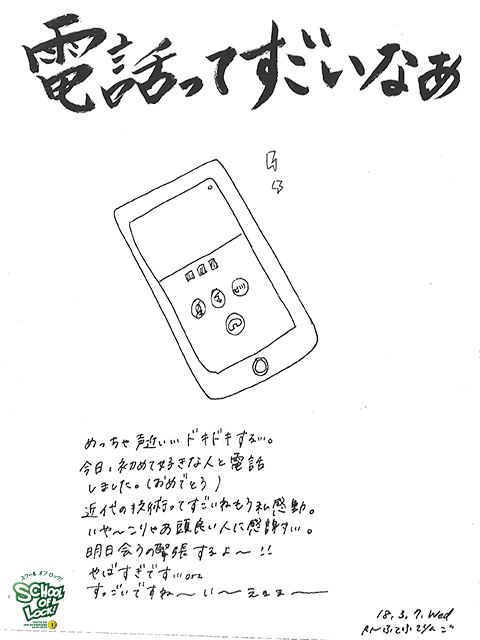 電話ってすごいなぁ
めっちゃ声近い… ドキドキする…。
今日、初めて好きな人と電話
しました。(おめでとう)
近代の技術ってすごいねもう私感動。
いや〜こりゃあ頭良い人に感謝すい。
明日会うの緊張するよ〜!!
やばすぎですぃorz
すっごいですね〜い〜ぇぇぇ〜
スクール オブ ロック!
SCHOOL OF LOCK!
18.3.7.Wed